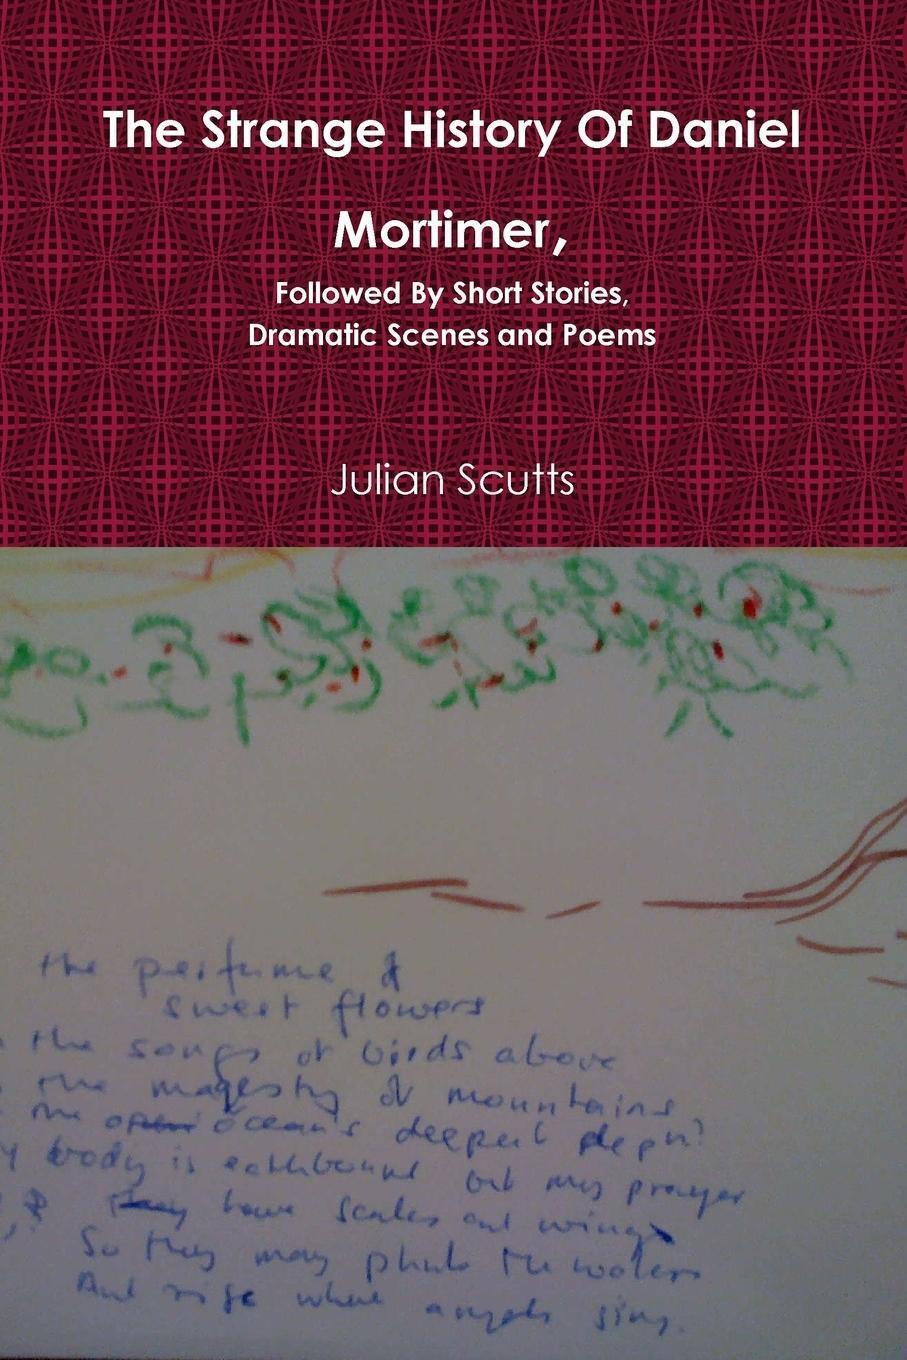 The Strange History Of Daniel
Mortimer,
Followed By Short Stories,
Dramatic Scenes and Poems
Julian Scutts
the perfume of
sweet flowers
the songs of birds above
the magesty of mountains
the ocean's deepest
body is earthbound but my prayer
have scales and wings
So they may the waters
And rise where angels sing.